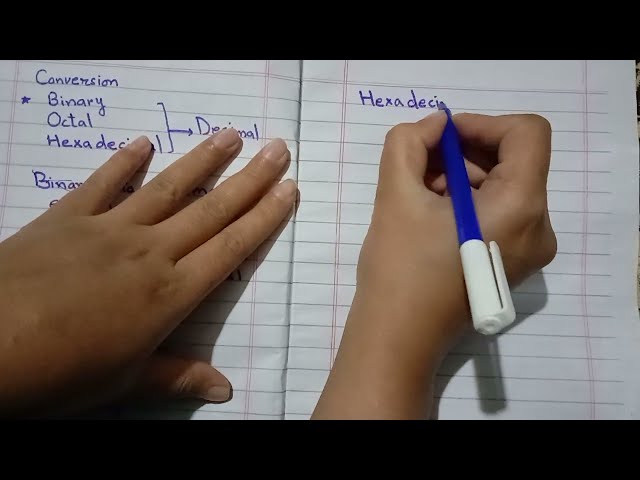 Conversion
* Binary
Octal
Hexadecimal
→ Decimal
Hexadeci